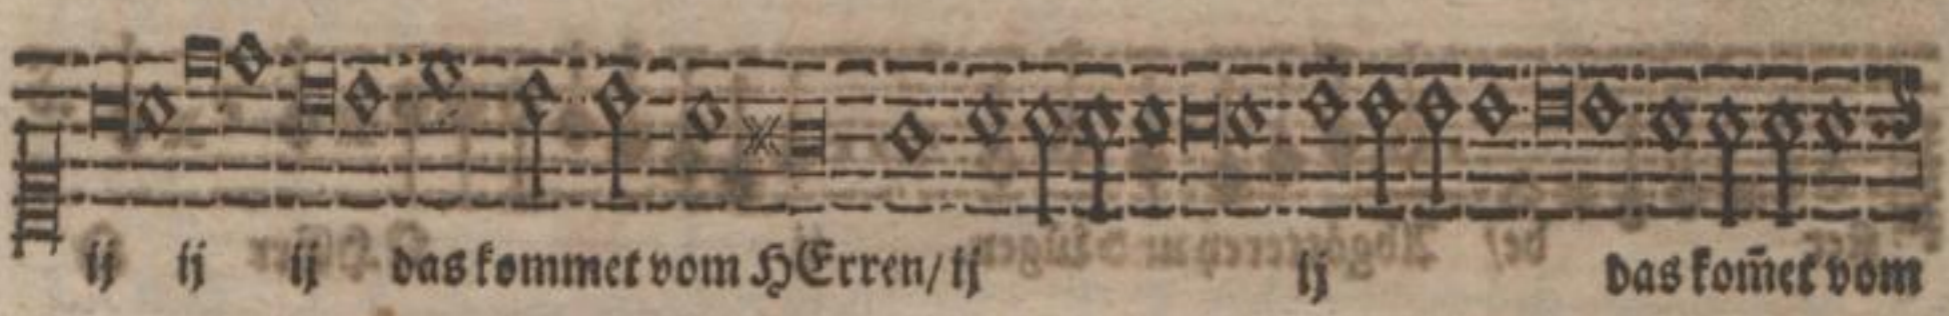 ij ij ij das kommet vom HErren/ ij ij das kom̃et vom